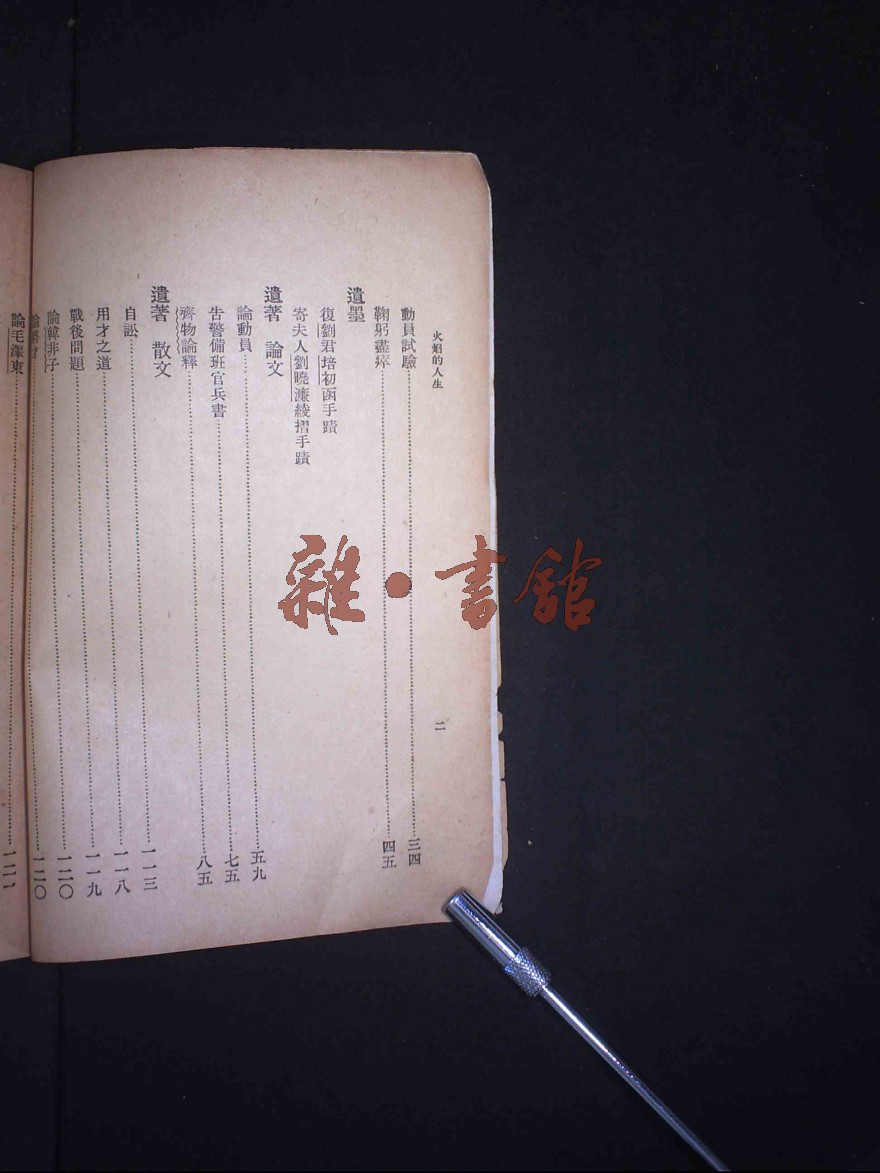 火焰的人生
二
動員試驗……三四
鞠躬盡瘁……四五
遺墨
復劉君培初函手蹟
寄夫人劉曉濂綾摺手蹟
遺著 論文
論動員……五九
告警備班官兵書……七五
齊物論釋……八五
遺著 散文
自訟……一一三
用才之道……一一八
戰後問題……一一九
論韓非子……一二〇
論……一二〇
論毛澤東……一二一
雜·書館